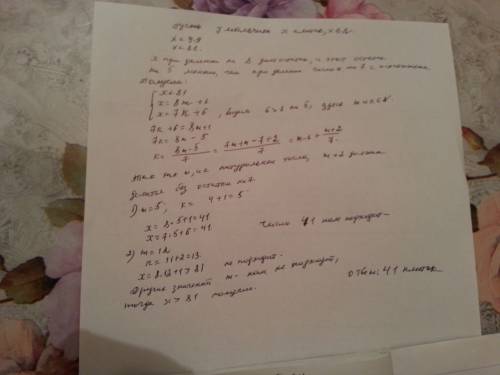 Пусть у мальчика x клеток, x∈N.
x = 9·9
x = 81.
x при делении на 8 даёт остаток, и этот остаток
на 5 меньше, чем при делении числа на 7 с остатком.
Получим:
x ≤ 81
x = 8m + 1
x = 7k + 6, видим 6 > 1 на 5, здесь m и k ∈ N
7k + 6 = 8m + 1
7k = 8m - 5
k = 8m-5/7 = 7m+m-7+2/7 = m-1 + m+2/7.
Так как m, k натуральные числа, m+2 должно
делится без остатка на 7.
1) m = 5, k = 4+1 = 5
x = 8·5+1 = 41
x = 7·5+6 = 41 Число 41 нам подходит.
2) m = 12
k = 11+2 = 13.
x = 8·12+1 > 81 не подходит.
Другие значения m нам не подходят,
тогда x > 81 получаем. Ответ: 41 клетка